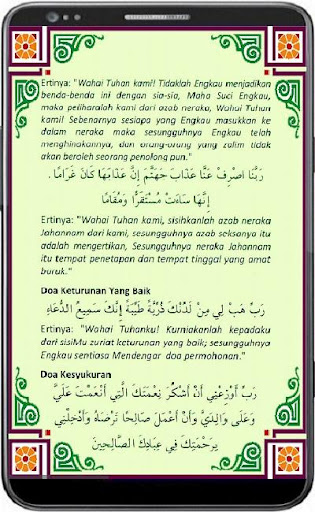 Ertinya: "Wahai Tuhan kami! Tidaklah Engkau menjadikan
benda-benda ini dengan sia-sia, Maha Suci Engkau,
maka peliharalah kami dari azab neraka, Wahai Tuhan
kami! Sebenarnya sesiapa yang Engkau masukkan ke
dalam neraka maka sesungguhnya Engkau telah
menghinakannya, dan orang-orang yang zalim tidak
akan beroleh seorang penolong pun."
رَبَّنَا اصْرِفْ عَنَّا عَذَابَ جَهَنَّمَ إِنَّ عَذَابَهَا كَانَ غَرَامًا.
إِنَّهَا سَاءَتْ مُسْتَقَرًّا وَمُقَامًا
Ertinya: "Wahai Tuhan kami, sisihkanlah azab neraka
Jahannam dari kami, sesungguhnya azab seksanya itu
adalah mengertikan, Sesungguhnya neraka Jahannam
itu tempat penetapan dan tempat tinggal yang amat
buruk."
Doa Keturunan Yang Baik
رَبِّ هَبْ لِي مِنْ لَدُنْكَ ذُرِّيَّةً طَيِّبَةً إِنَّكَ سَمِيعُ الدُّعَاءِ
Ertinya: "Wahai Tuhanku! Kurniakanlah kepadaku
dari sisiMu zuriat keturunan yang baik; sesungguhnya
Engkau sentiasa Mendengar doa permohonan."
Doa Kesyukuran
رَبِّ أَوْزِعْنِي أَنْ أَشْكُرَ نِعْمَتَكَ الَّتِي أَنْعَمْتَ عَلَيَّ
وَعَلَى وَالِدَيَّ وَأَنْ أَعْمَلَ صَالِحًا تَرْضَاهُ وَأَدْخِلْنِي
بِرَحْمَتِكَ فِي عِبَادِكَ الصَّالِحِينَ